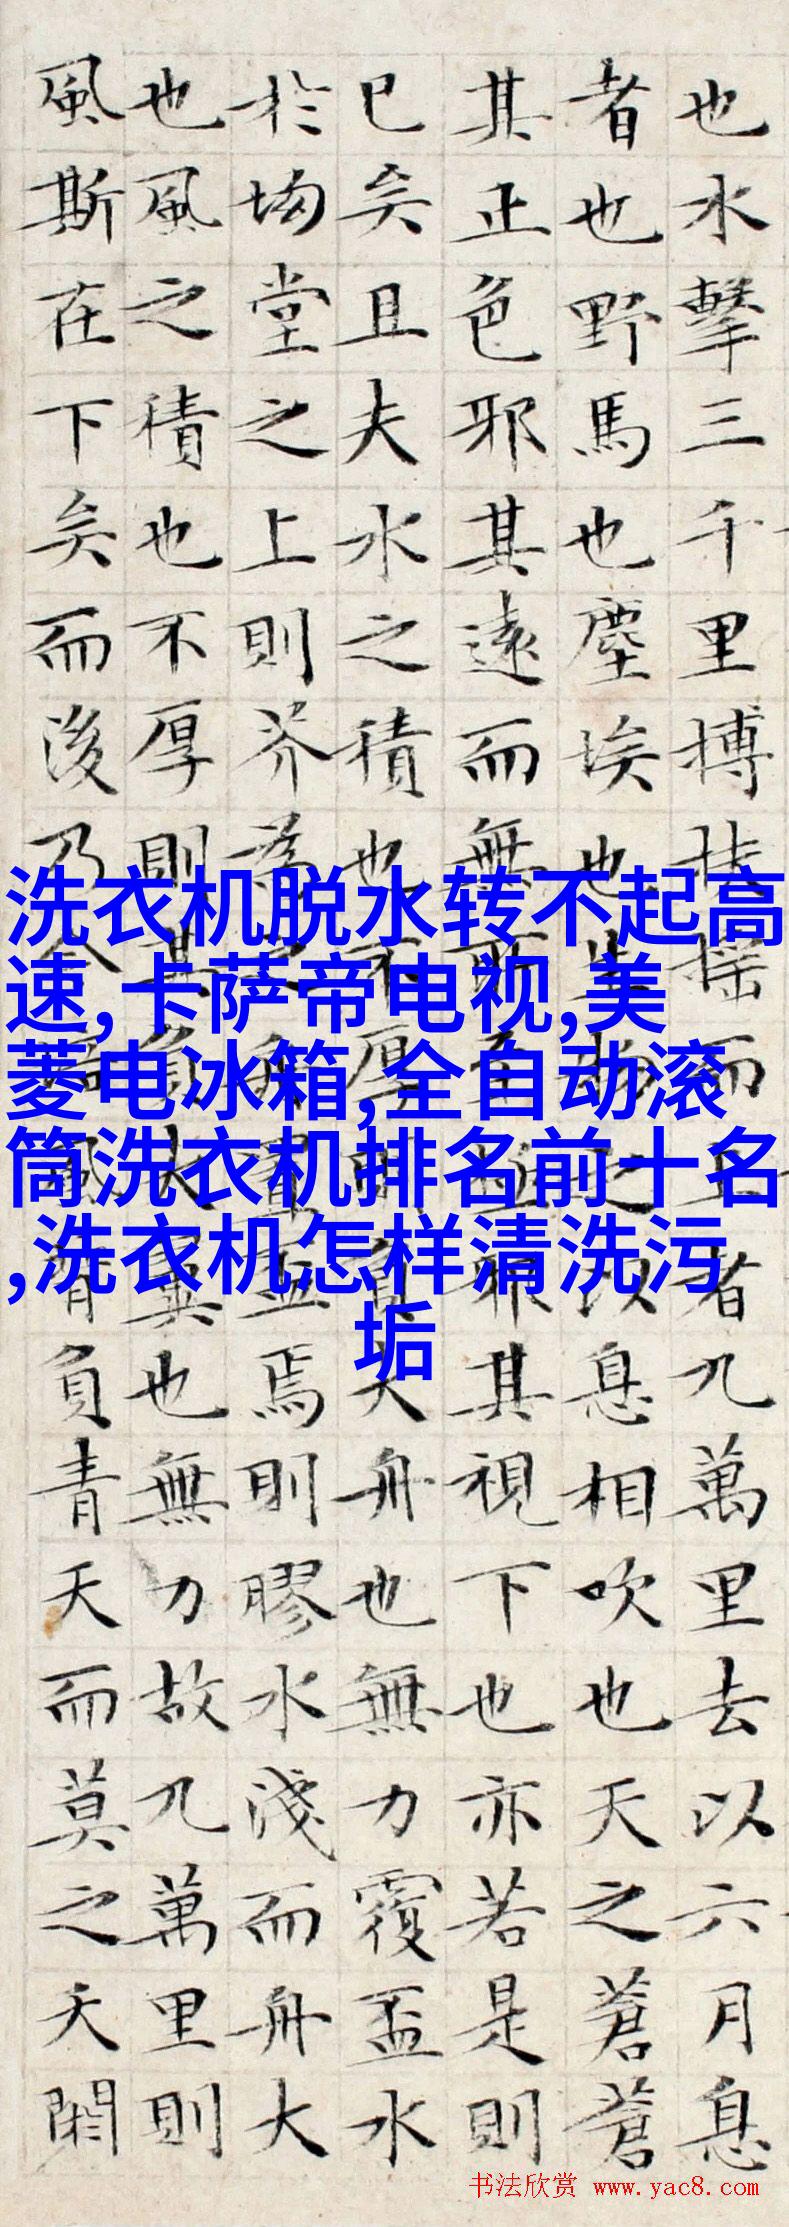 也水擊三千里搏扶搖而上者九萬里去以六月息
者也野馬也塵埃也生物之以息相吹也天之蒼蒼
其正色邪其遠而無所至極邪其視下也亦若是則
已矣且夫水之積也不厚則負大舟也無力覆盃水
於坳堂之上則芥為之舟置盃焉則膠水淺而舟大
也風之積也不厚則其負大翼也無力故九萬里則
風斯在下矣而後乃今培風背負青天而莫之夭閼
洗衣机脱水转不起高
速,卡萨帝电视,美
菱电冰箱,全自动滚
筒洗衣机排名前十名
,洗衣机怎样清洗污
垢
书法欣赏 www.yac8.com